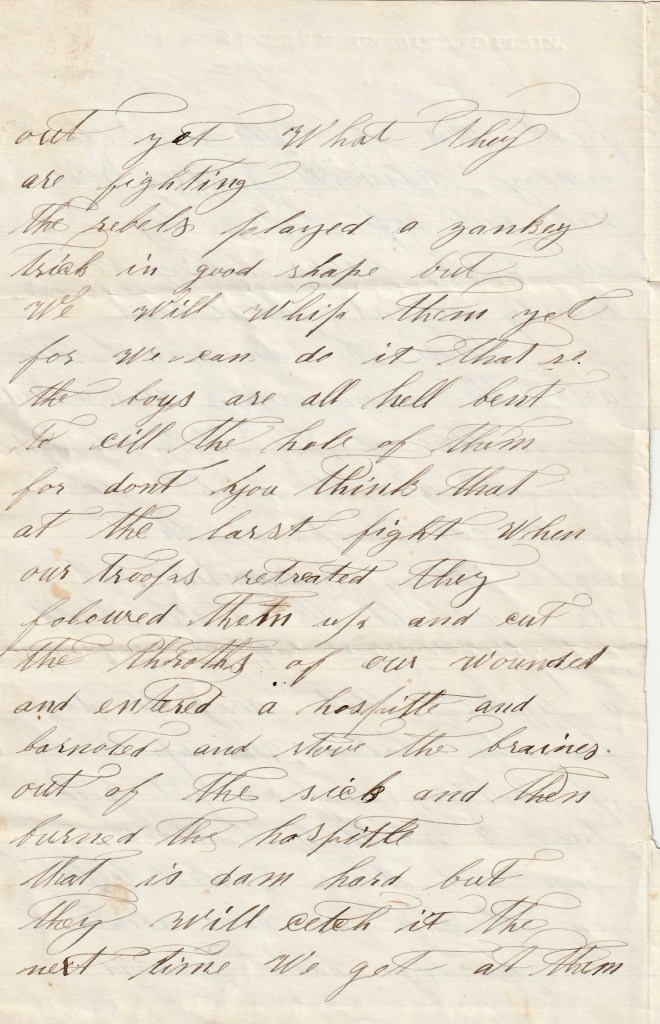 out yet What they
are fighting
the rebels played a yankey
trick in good shape but
We Will Whip them yet
for We can do it that is
the boys are all hell bent
to cill the hole of them
for dont you think that
at the larst fight When
our troops retreated they
foloured them up and cut
the throths of our wounded
and entered a hospitle and
barnoted and stove the braines
out of the sick and then
burned the hospitle
that is dam hard but
they Will cetch it the
next time We get at them